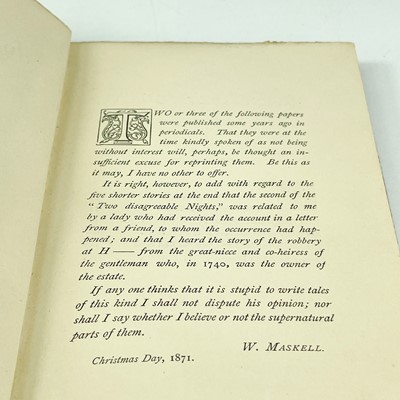 TWO or three of the following papers
were published some years ago in
periodicals. That they were at the
time kindly spoken of as not being
without interest will, perhaps, be thought an in-
sufficient excuse for reprinting them. Be this as
it may, I have no other to offer.
It is right, however, to add with regard to the
five shorter stories at the end that the second of the
"Two disagreeable Nights," was related to me
by a lady who had received the account in a letter
from a friend, to whom the occurrence had hap-
pened; and that I heard the story of the robbery
at H—— from the great-niece and co-heiress of
the gentleman who, in 1740, was the owner of
the estate.
If any one thinks that it is stupid to write tales
of this kind I shall not dispute his opinion; nor
shall I say whether I believe or not the supernatural
parts of them.
W. MASKELL.
Christmas Day, 1871.